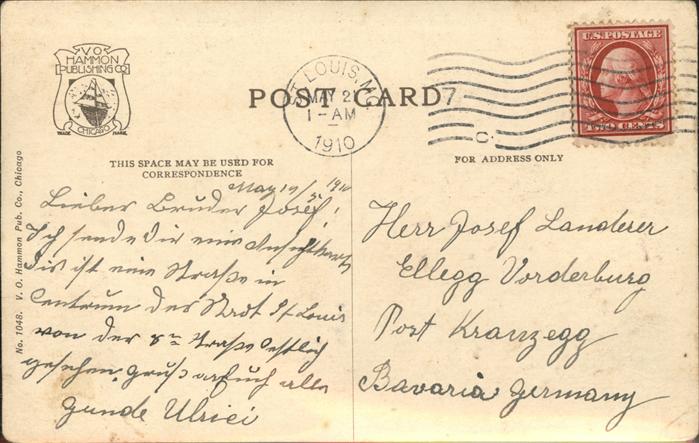 V.O.
HAMMON
PUBLISHING CO.
TRADE MARK
CHICAGO
POST CARD
ST. LOUIS, MO.
MAY 2
1-AM
1910
7
C.
U.S. POSTAGE
TWO CENTS
THIS SPACE MAY BE USED FOR
CORRESPONDENCE
FOR ADDRESS ONLY
No. 1048. V. O. Hammon Pub. Co., Chicago
May 19/ 1910
Lieber Bruder Josef!
Ich sende dir eine Ansichtkarte
dis ist eine Straße in
Centrum des Stadt St Louis
von der 8ten Straße östlich
gesehen, gruß an Euch alle
Gunde Ulrici
Herr Josef Landerer
Ellegg Vorderburg
Port Kranzegg
Bavaria Germany